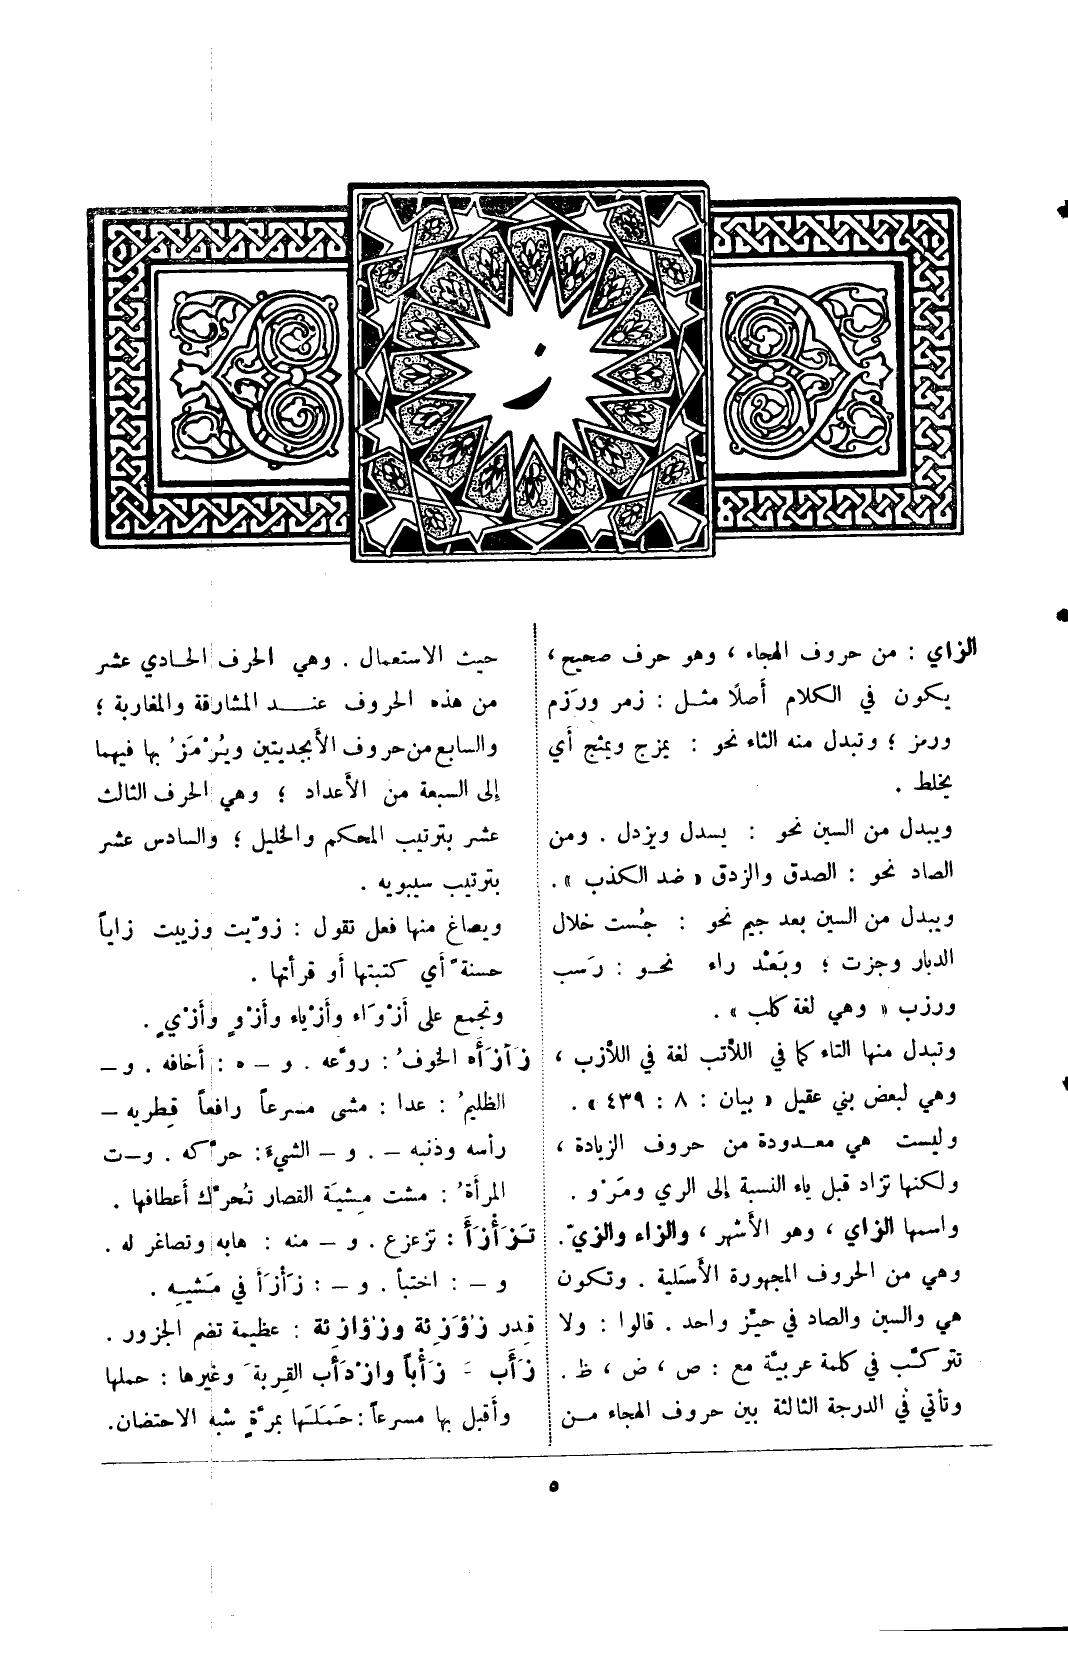 ز
الزاي : من حروف الهجاء ، وهو حرف صحيح ،
يكون في الكلام أصلًا مثل : زمر ورَزم
ورمز ؛ وتبدل منه الثاء نحو : يمزج ويمثج أي
يخلط .
ويبدل من السين نحو : يسدل ويزدل . ومن
الصاد نحو : الصدق والزدق « ضد الكذب » .
ويبدل من السين بعد جيم نحو : جُست خلال
الديار وجزت ؛ وبَعْد راء نحو : رَسب
ورزب « وهي لغة كلب » .
وتبدل منها التاء كما في اللأتب لغة في اللأزب ،
وهي لبعض بني عقيل « بيان : ٨ : ٤٣٩ » .
وليست هي معدودة من حروف الزيادة ،
ولكنها تزاد قبل ياء النسبة إلى الري ومَرْو .
واسمها الزاي ، وهو الأَشهر ، والزاء والزيّ .
وهي من الحروف المجهورة الأَسَلية . وتكون
هي والسين والصاد في حيّز واحد . قالوا : ولا
تتركّب في كلمة عربيّة مع : ص ، ض ، ظ .
وتأتي في الدرجة الثالثة بين حروف الهجاء من
حيث الاستعمال . وهي الحرف الحادي عشر
من هذه الحروف عند المشارقة والمغاربة ؛
والسابع من حروف الأبجديتين ويُرْمَزُ بها فيهما
إلى السبعة من الأَعداد ؛ وهي الحرف الثالث
عشر بترتيب المحكم والخليل ؛ والسادس عشر
بترتيب سيبويه .
ويصاغ منها فعل تقول : زوّيت وزييت زاياً
حسنةً أي كتبتها أو قرأتها .
وتجمع على أَزْوَاء وأَزْياء وأَزْوٍ وأَزْيٍ .
زَأزَأَه الخوفُ : روّعه . و – ه : أخافه . و –
الظليمُ : عدا : مشى مسرعاً رافعاً قِطريه –
رأسه وذنبه – . و – الشيءَ : حرّكه . و – ت
المرأةُ : مشت مِشيَة القصار تُحرّك أعطافها .
تَزَأْزَأَ : تزعزع . و – منه : هابه وتصاغر له .
و – : اختبأ . و – : زَأزَأَ في مَشيِه .
قِدر زُؤَزِئة وزُؤازِئة : عظيمة تضم الجزور .
زَأَب - زَأْباً وازْدَأَب القِربةَ وغيرها : حملها
وأَقبل بها مسرعاً : حَمَلَها بمرّةٍ شبه الاحتضان .
٥